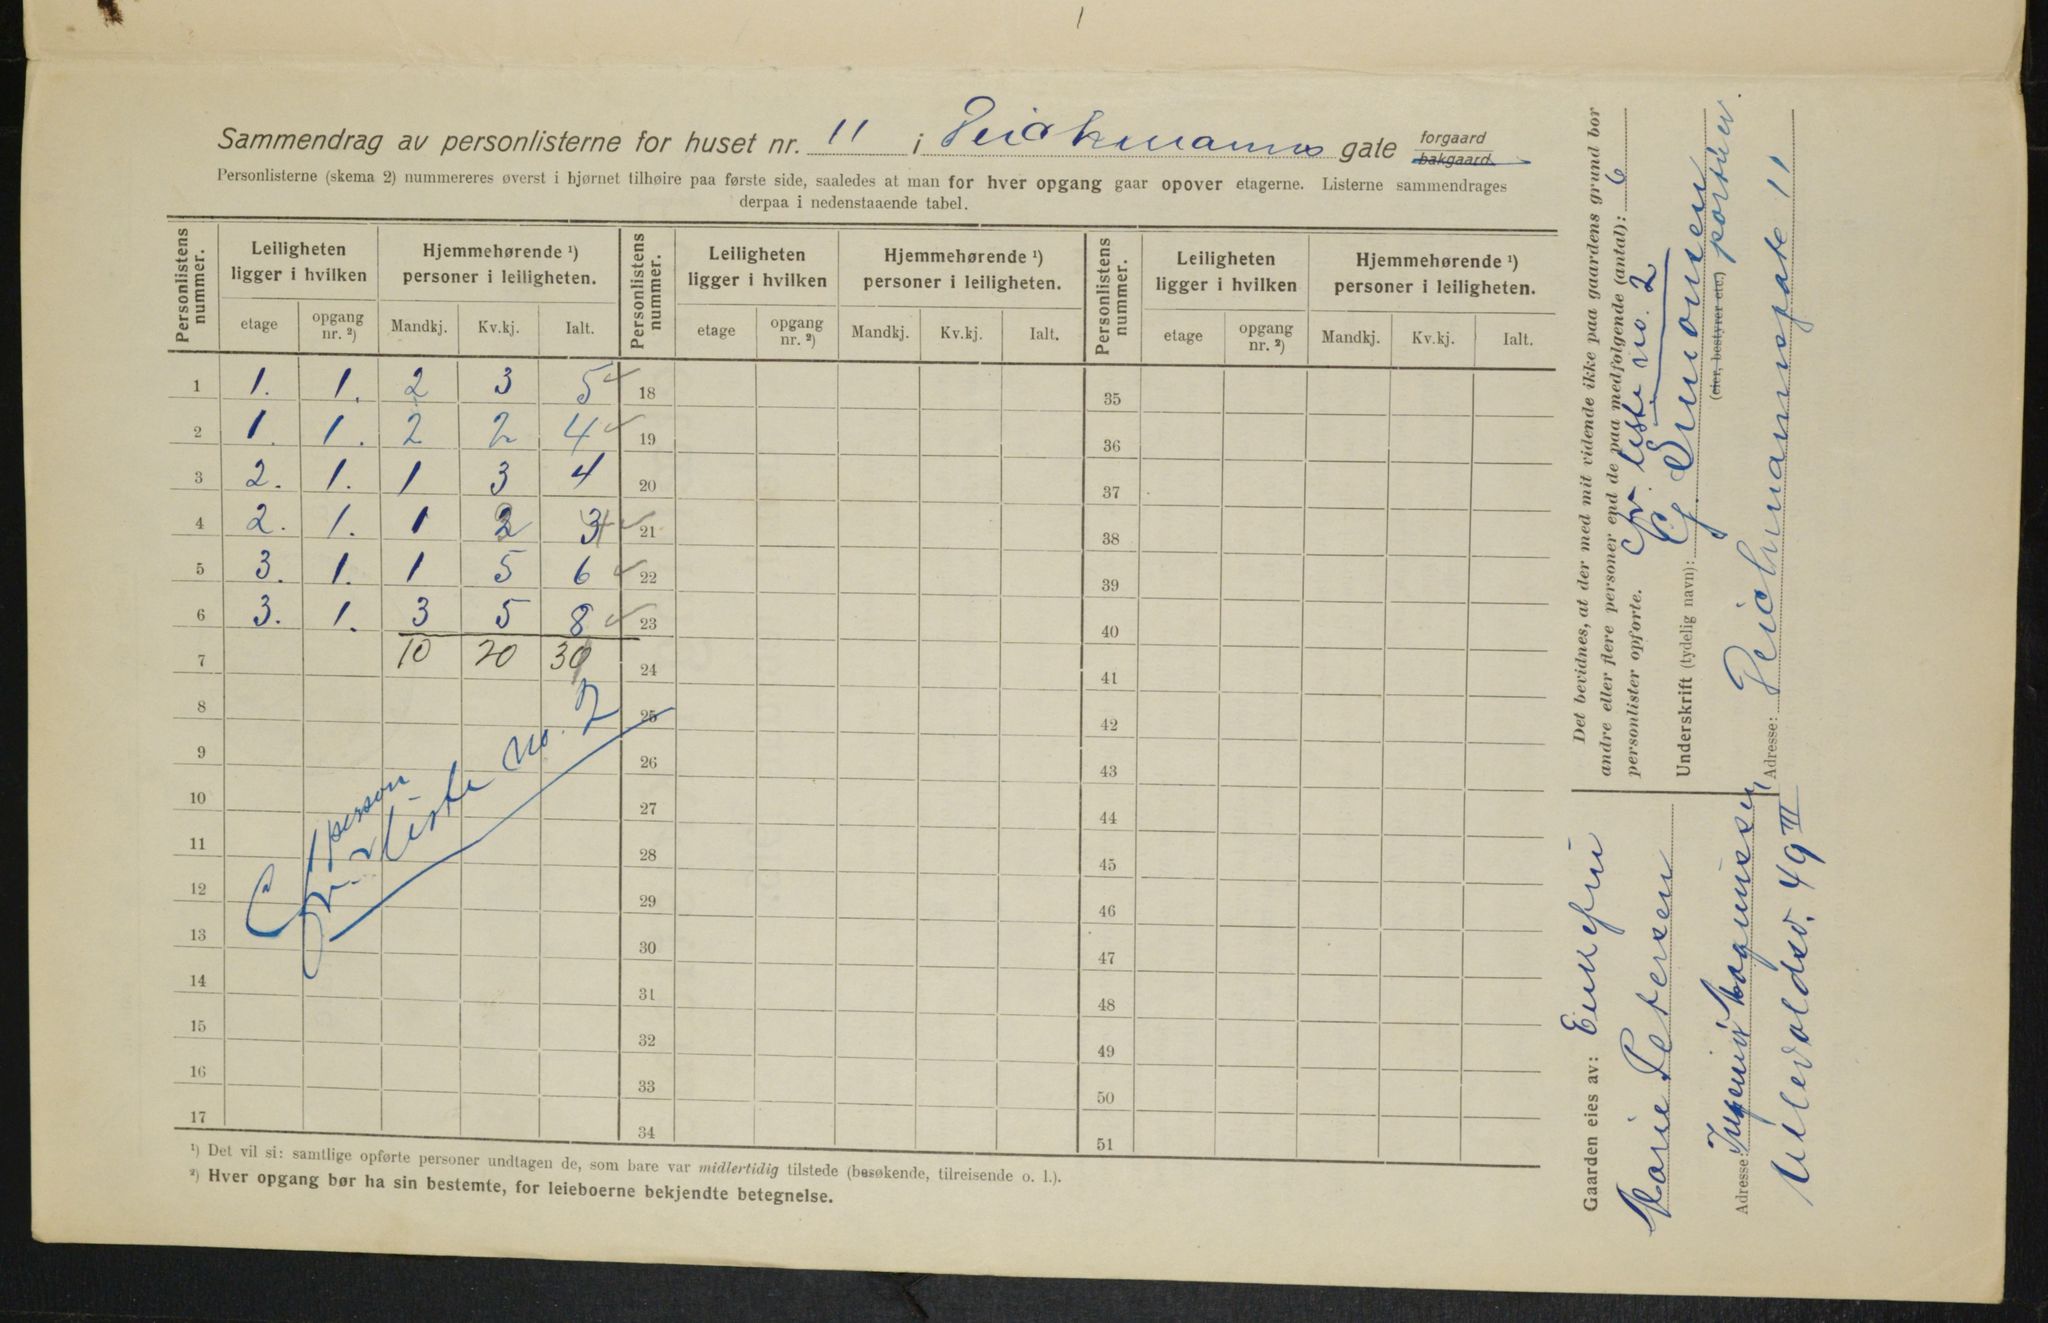 Sammendrag av personlisterne for huset nr. 11 i Deichmanns gate forgaard bakgaard.
Personlisterne (skema 2) nummereres øverst i hjørnet tilhøire paa første side, saaledes at man for hver opgang gaar opover etagerne. Listerne sammendrages
derpaa i nedenstaaende tabel.
Personlistens nummer. Leiligheten ligger i hvilken Hjemmehørende ¹) personer i leiligheten. Personlistens nummer. Leiligheten ligger i hvilken Hjemmehørende ¹) personer i leiligheten. Personlistens nummer. Leiligheten ligger i hvilken Hjemmehørende ¹) personer i leiligheten.
etage opgang nr. ²) Mandkj. Kv.kj. Ialt. etage opgang nr. ²) Mandkj. Kv.kj. Ialt. etage opgang nr. ²) Mandkj. Kv.kj. Ialt.
1 1. 1. 2 3 5 18 35
2 1. 1. 2 2 4 19 36
3 2. 1. 1 3 4 20 37
4 2. 1. 1 2 3 21 38
5 3. 1. 1 5 6 22 39
6 3. 1. 3 5 8 23 40
7 10 20 30 24 41
8 25 42
9 26 43
10 27 44
11 28 45
12 29 46
13 30 47
14 31 48
15 32 49
16 33 50
17 34 51
1 person
Cfr. liste no. 2
¹) Det vil si: samtlige opførte personer undtagen de, som bare var midlertidig tilstede (besøkende, tilreisende o. l.).
²) Hver opgang bør ha sin bestemte, for leieboerne bekjendte betegnelse.
Det bevidnes, at der med mit vidende ikke paa gaardens grund bor
andre eller flere personer end de paa medfølgende (antal): 6
personlister opførte. Cfr. liste no. 2
Underskrift (tydelig navn): Simonsen
(eier, bestyrer etc.) portier.
Adresse: Deichmannsgate 11
Gaarden eies av: Enkefru
Marie Petersen
Adresse: Ingeniør Magnussen
Ullevoldsv. 49 III